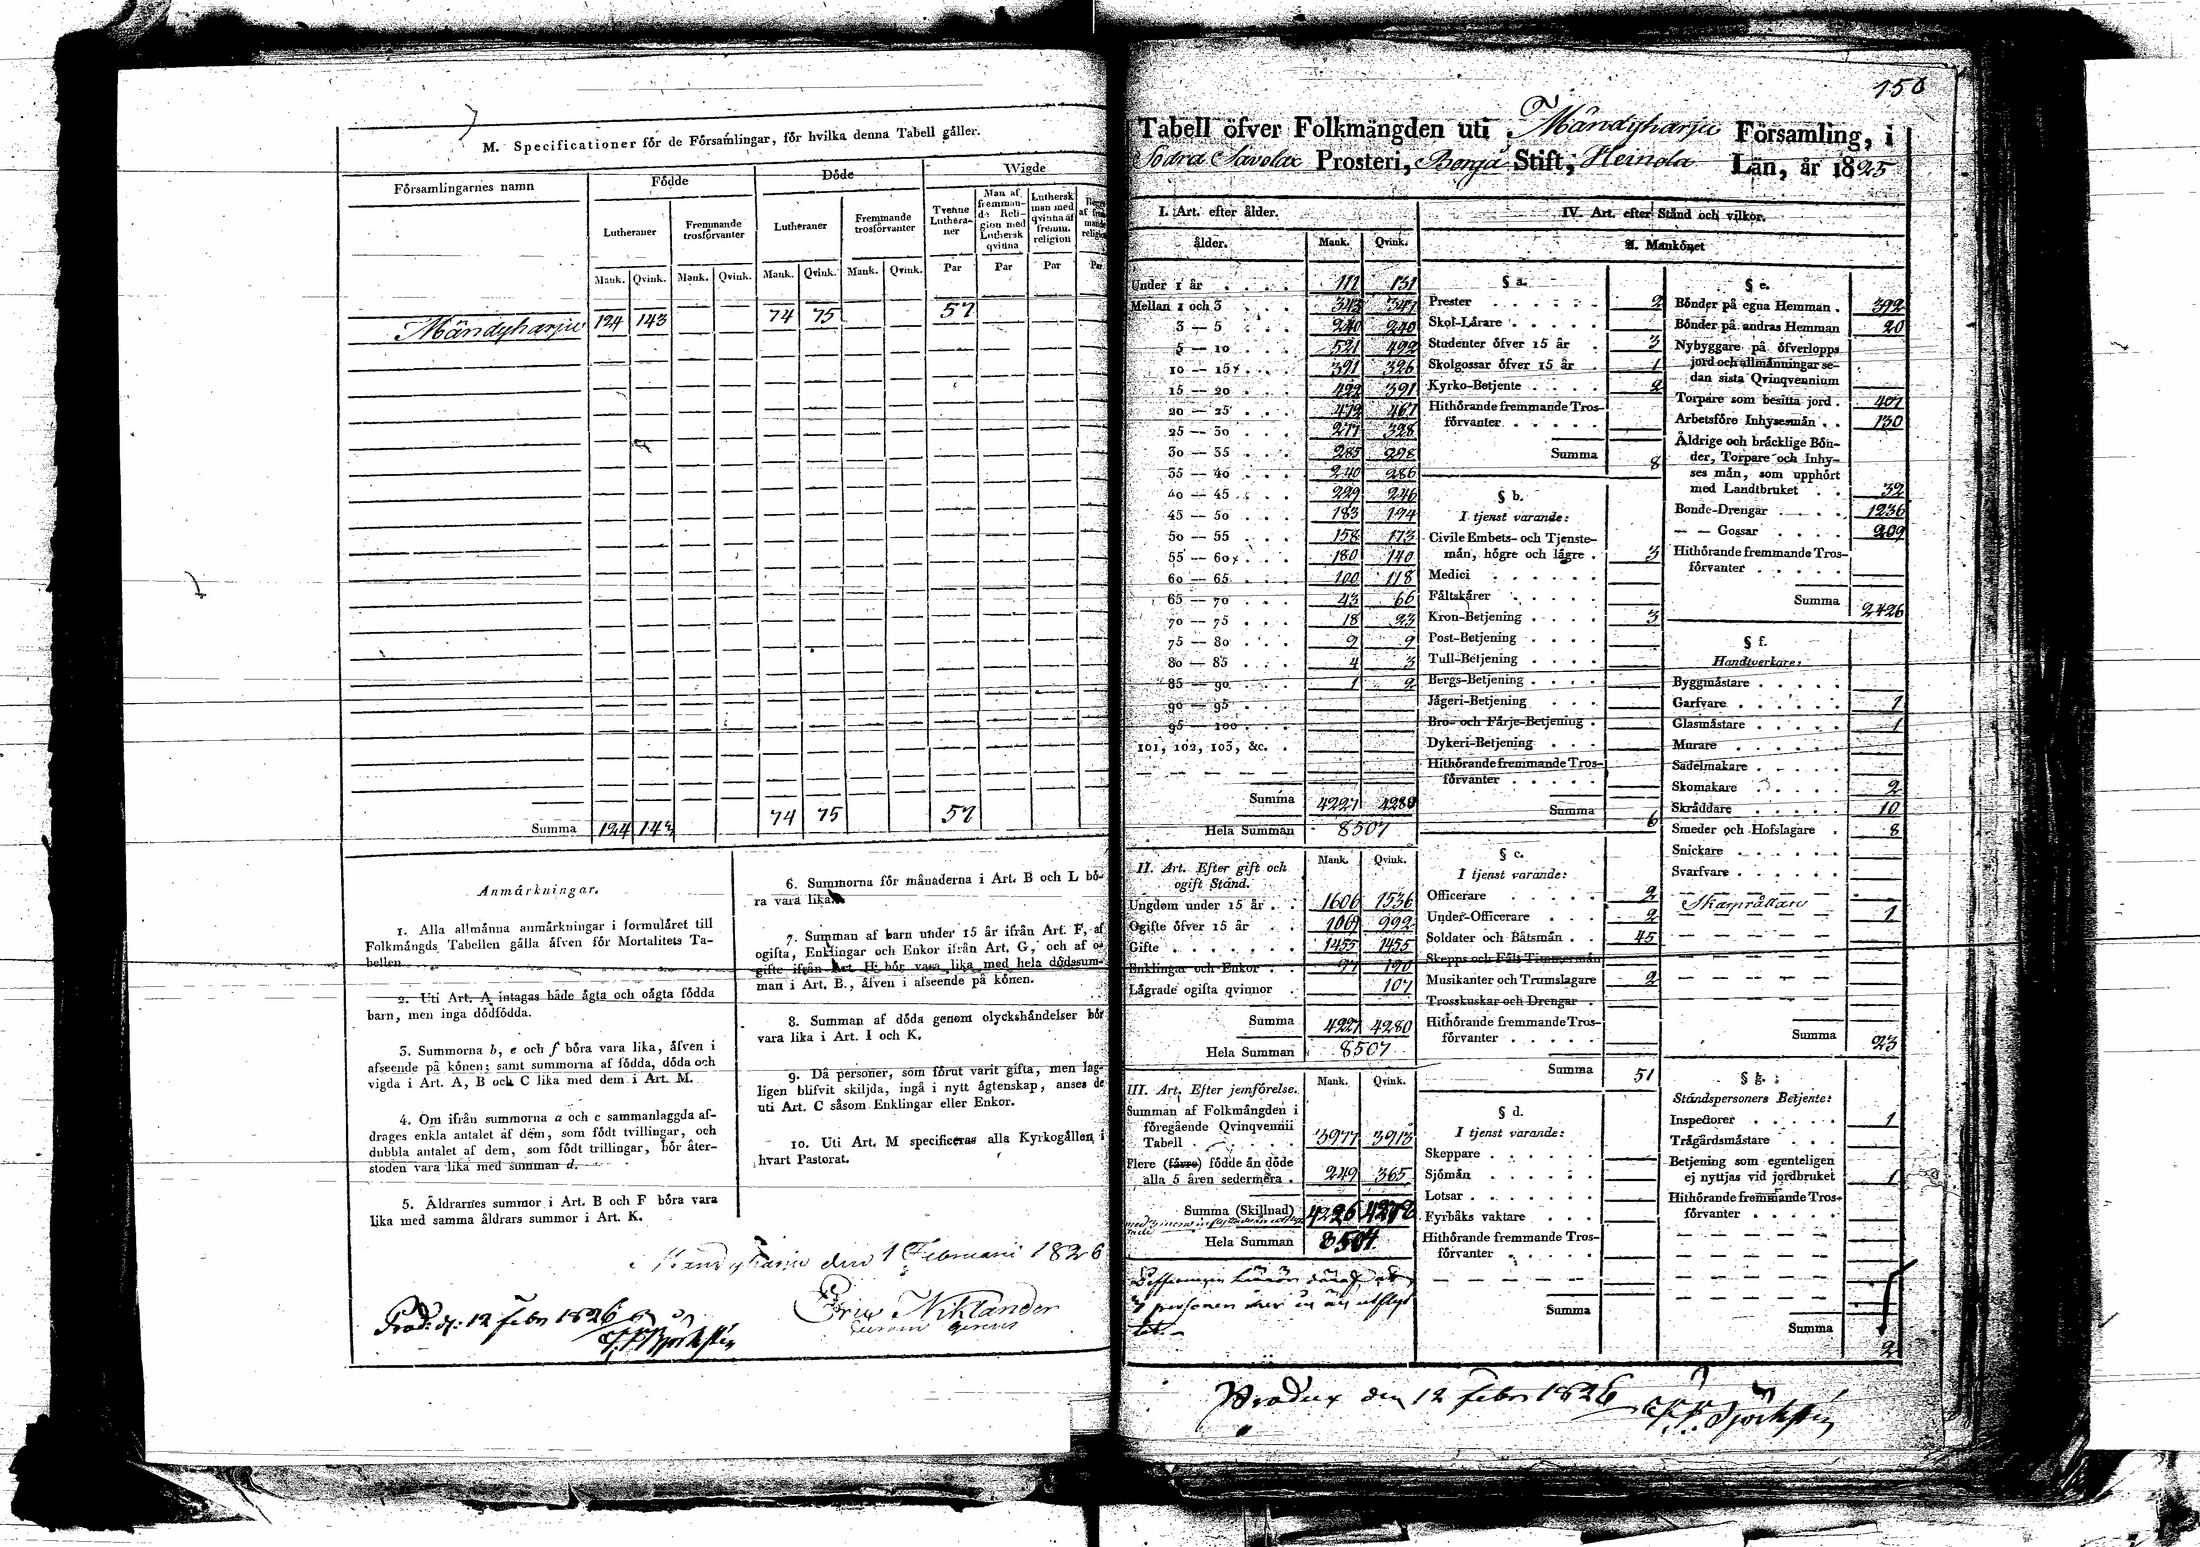 M. Specificationer för de Församlingar, för hvilka denna Tabell gäller.
Församlingarnes namn
Födde
Döde
Wigde
Lutheraner
Fremmande trosförvanter
Lutheraner
Fremmande trosförvanter
Tvenne Luthera-ner
Man af fremman-de Reli-gion med Luthersk qvinna
Luthersk man med qvinna af fremm. religion
Mank. Qvink. Mank. Qvink. Mank. Qvink. Mank. Qvink. Par Par Par
Mändyharju 124 143 74 75 57
Summa 124 143 74 75 57
Anmärkningar.
1. Alla allmänna anmärkningar i formuläret till
Folkmängds Tabellen gälla äfven för Mortalitets Ta-
bellen.
2. Uti Art. A intagas både ägta och oägta födda
barn, men inga dödfödda.
3. Summorna b, e och f böra vara lika, äfven i
afseende på könen; samt summorna af födda, döda och
vigda i Art. A, B och C lika med dem i Art. M.
4. Om ifrån summorna a och c sammanlaggda af-
drages enkla antalet af dem, som födt tvillingar, och
dubbla antalet af dem, som födt trillingar, bör åter-
stoden vara lika med summan d.
5. Äldrarnes summor i Art. B och F böra vara
lika med samma åldrars summor i Art. K.
6. Summorna för månaderna i Art. B och L bö-
ra vara lika.
7. Summan af barn under 15 år ifrån Art. F, af
ogifta, Enklingar och Enkor ifrån Art. G, och af o-
gifte ifrån Art. H bör vara lika med hela dödssum-
man i Art. B., äfven i afseende på könen.
8. Summan af döda genom olyckshändelser bör
vara lika i Art. I och K.
9. Då personer, som förut varit gifta, men lag-
ligen blifvit skiljda, ingå i nytt ägtenskap, anses de
uti Art. C såsom Enklingar eller Enkor.
10. Uti Art. M specificeras alla Kyrkogällen i
hvart Pastorat.
Mändyharju den 1 Februarii 1826
Eric Niklander
Prod. d. 12 Febr 1826
150
Tabell öfver Folkmängden uti Mändyharju Församling, i
Södra Savolax Prosteri, Borgå Stift, Heinola Län, år 1825
I. Art. efter ålder.
ålder. Mank. Qvink.
Under 1 år 111 131
Mellan 1 och 3 343 347
3 — 5 240 240
5 — 10 521 492
10 — 15 391 326
15 — 20 422 391
20 — 25 472 467
25 — 30 277 328
30 — 35 285 298
35 — 40 240 286
40 — 45 229 246
45 — 50 183 194
50 — 55 158 173
55 — 60 180 140
60 — 65 100 118
65 — 70 43 66
70 — 75 18 23
75 — 80 9 9
80 — 85 4 3
85 — 90 1 2
90 — 95
95 — 100
101, 102, 103, &c.
Summa 4227 4280
Hela Summan 8507
II. Art. Efter gift och
ogift Stånd. Mank. Qvink.
Ungdom under 15 år 1606 1536
Ogifte öfver 15 år 1069 992
Gifte 1455 1455
Enklingar och Enkor 97 190
Lägrade ogifta qvinnor 107
Summa 4227 4280
Hela Summan 8507
III. Art. Efter jemförelse. Mank. Qvink.
Summan af Folkmängden i
föregående Qvinqvennii
Tabell 3977 3913
Flere (färre) födde än döde
alla 5 åren sedermera 249 365
Summa (Skillnad) 4226 4278
Hela Summan 8504
IV. Art. efter Stånd och vilkor.
A. Mankönet
§ a.
Prester 2
Skol-Lärare
Studenter öfver 15 år 3
Skolgossar öfver 15 år 1
Kyrko-Betjente 2
Hithörande fremmande Tros-
förvanter
Summa 8
§ b.
I tjenst varande:
Civile Embets- och Tjenste-
män, högre och lägre 3
Medici
Fältskärer
Kron-Betjening 3
Post-Betjening
Tull-Betjening
Bergs-Betjening
Jägeri-Betjening
Bro- och Färje-Betjening
Dykeri-Betjening
Hithörande fremmande Tros-
förvanter
Summa 6
§ c.
I tjenst varande:
Officerare 2
Under-Officerare 2
Soldater och Båtsmän 45
Skepps och Fält Timmermän
Musikanter och Trumslagare 2
Trosskuskar och Drengar
Hithörande fremmande Tros-
förvanter
Summa 51
§ d.
I tjenst varande:
Skeppare
Sjömän
Lotsar
Fyrbåks vaktare
Hithörande fremmande Tros-
förvanter
Summa
§ e.
Bönder på egna Hemman 392
Bönder på andras Hemman 20
Nybyggare på öfverlopps
jord och allmänningar se-
dan sista Qvinqvennium
Torpare som besitta jord 407
Arbetsföre Inhysesmän 130
Äldrige och bräcklige Bön-
der, Torpare och Inhy-
ses män, som upphört
med Landtbruket 32
Bonde-Drengar 1236
— — Gossar 209
Hithörande fremmande Tros-
förvanter
Summa 2426
§ f.
Handtverkare:
Byggmästare
Garfvare 1
Glasmästare 1
Murare
Sadelmakare
Skomakare 2
Skräddare 10
Smeder och Hofslagare 8
Snickare
Svarfvare
Skarprättare 1
Summa 23
§ g.
Ståndspersoners Betjente:
Inspectorer 1
Trägårdsmästare
Betjening som egenteligen
ej nyttjas vid jordbruket 1
Hithörande fremmande Tros-
förvanter
Summa 2
den 12 Febr 1826